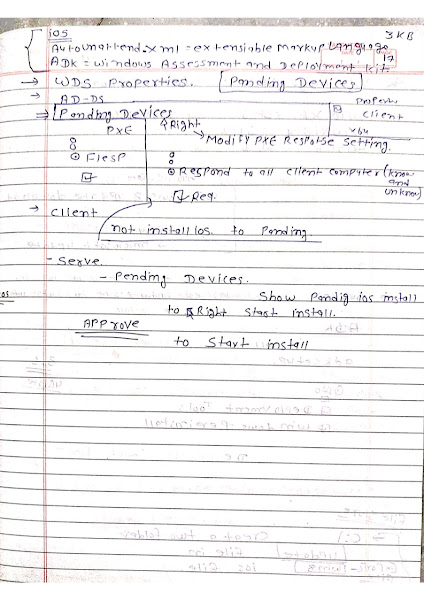 ios
3KB
Autounattend.xml = extensiable Markup Language
ADK = windows Assessment and Deployment kit.
17
→ WDS Properties. [Pending Devices]
→ AD-DS
⇒ Pending Devices
Property
Client
x64
PXE
Right
Modify PXE Response Setting.
Respond to all client computer (know and unknow)
Req.
→ Client
not install ios. to Panding.
- Serve
- Pending Devices.
Show Pandig ios install
to Right Start install.
APProve
to Start install